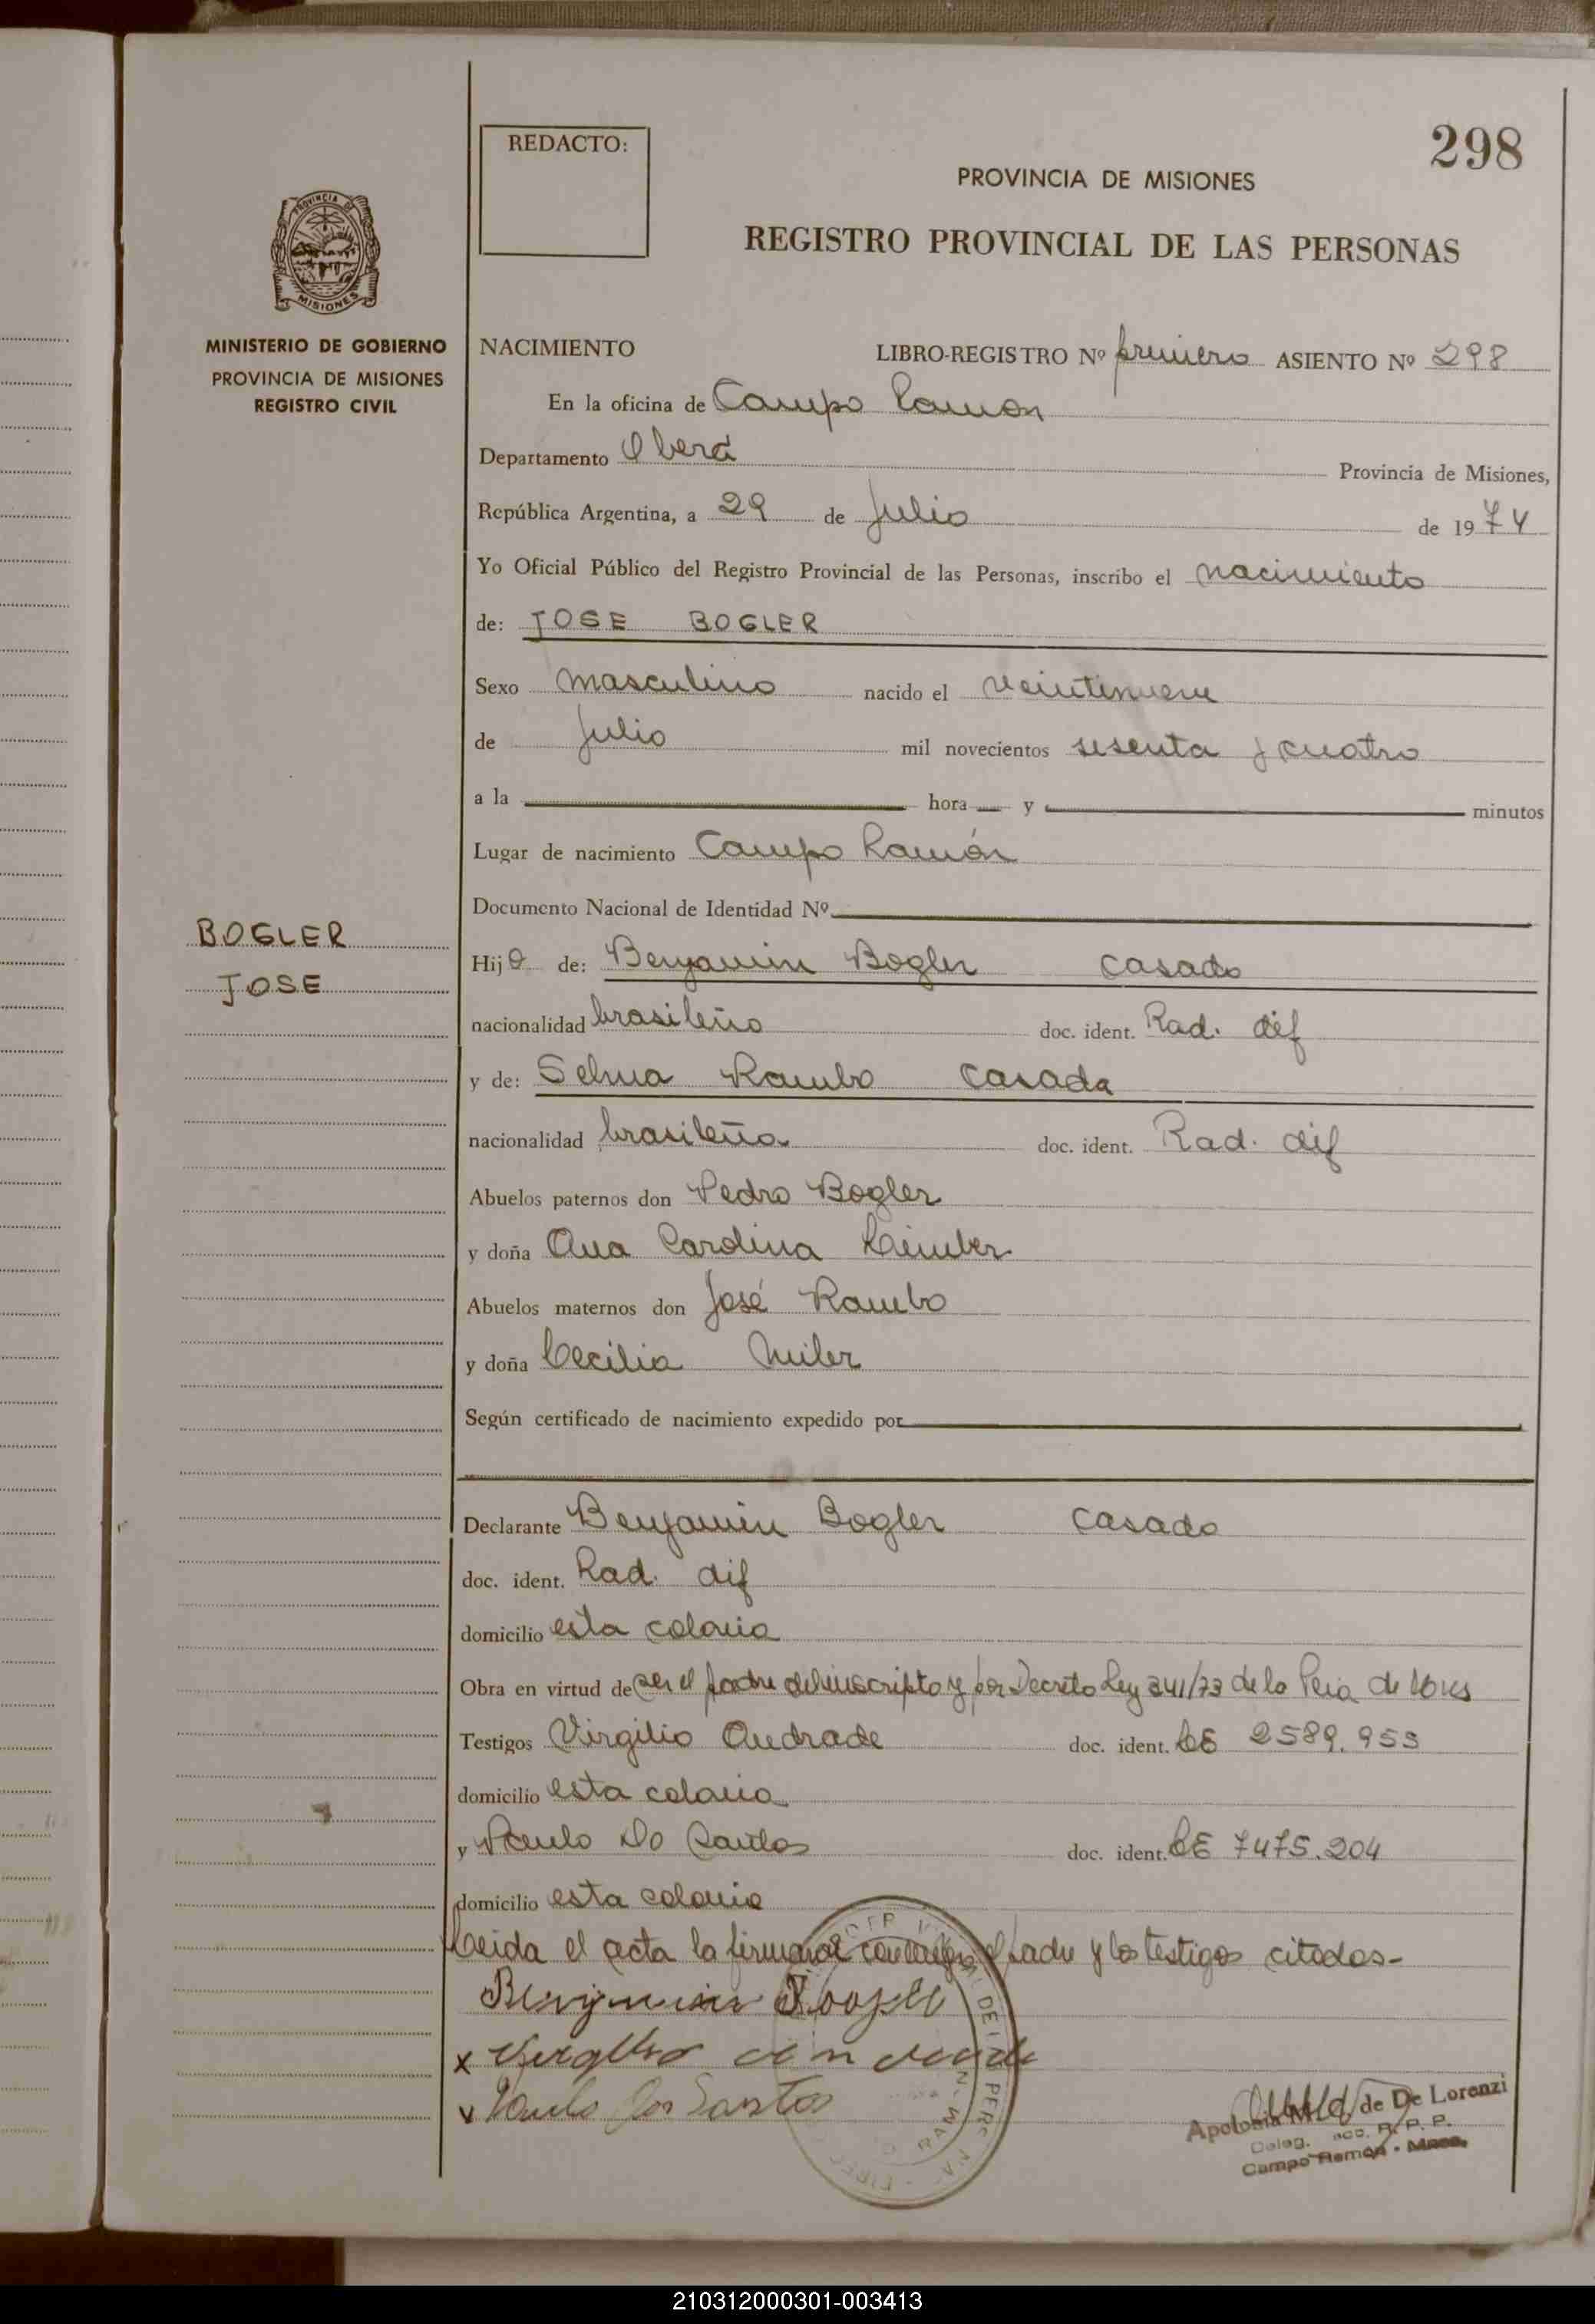 298
REDACTO:
PROVINCIA DE MISIONES
REGISTRO PROVINCIAL DE LAS PERSONAS
PROVINCIA DE
MISIONES
MINISTERIO DE GOBIERNO
PROVINCIA DE MISIONES
REGISTRO CIVIL
NACIMIENTO LIBRO-REGISTRO Nº primero ASIENTO Nº 298
En la oficina de Campo Ramon
Departamento Oberá Provincia de Misiones,
República Argentina, a 29 de Julio de 1974
Yo Oficial Público del Registro Provincial de las Personas, inscribo el nacimiento
de: JOSE BOGLER
Sexo masculino nacido el veintinueve
de Julio mil novecientos sesenta y cuatro
a la hora y minutos
Lugar de nacimiento Campo Ramón
Documento Nacional de Identidad Nº
BOGLER
JOSE
Hijo de: Benjamin Bogler casado
nacionalidad brasileño doc. ident. Rad. dif
y de: Selma Rambo casada
nacionalidad brasileña doc. ident. Rad. dif
Abuelos paternos don Pedro Bogler
y doña Ana Carolina
Abuelos maternos don José Rambo
y doña Cecilia Miler
Según certificado de nacimiento expedido por
Declarante Benjamin Bogler casado
doc. ident. Rad. dif
domicilio esta colonia
Obra en virtud de ser el padre del inscripto y por Decreto Ley 341/73 de la Pcia de
Testigos Virgilio Andrade doc. ident. LE 2589.953
domicilio esta colonia
y Paulo Do Santos doc. ident. LE 7475.204
domicilio esta colonia
Leida el acta la firman conmigo el padre y los testigos citados-
x
Paulo dos Santos
Apolonia M. de De Lorenzi
Deleg. R. P. P.
Campo Ramón - Mnes.
210312000301-003413